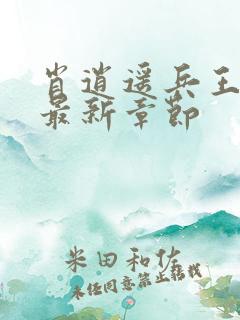 肖逍遥兵王
最新章节
米田和佐
未经同意禁止转载